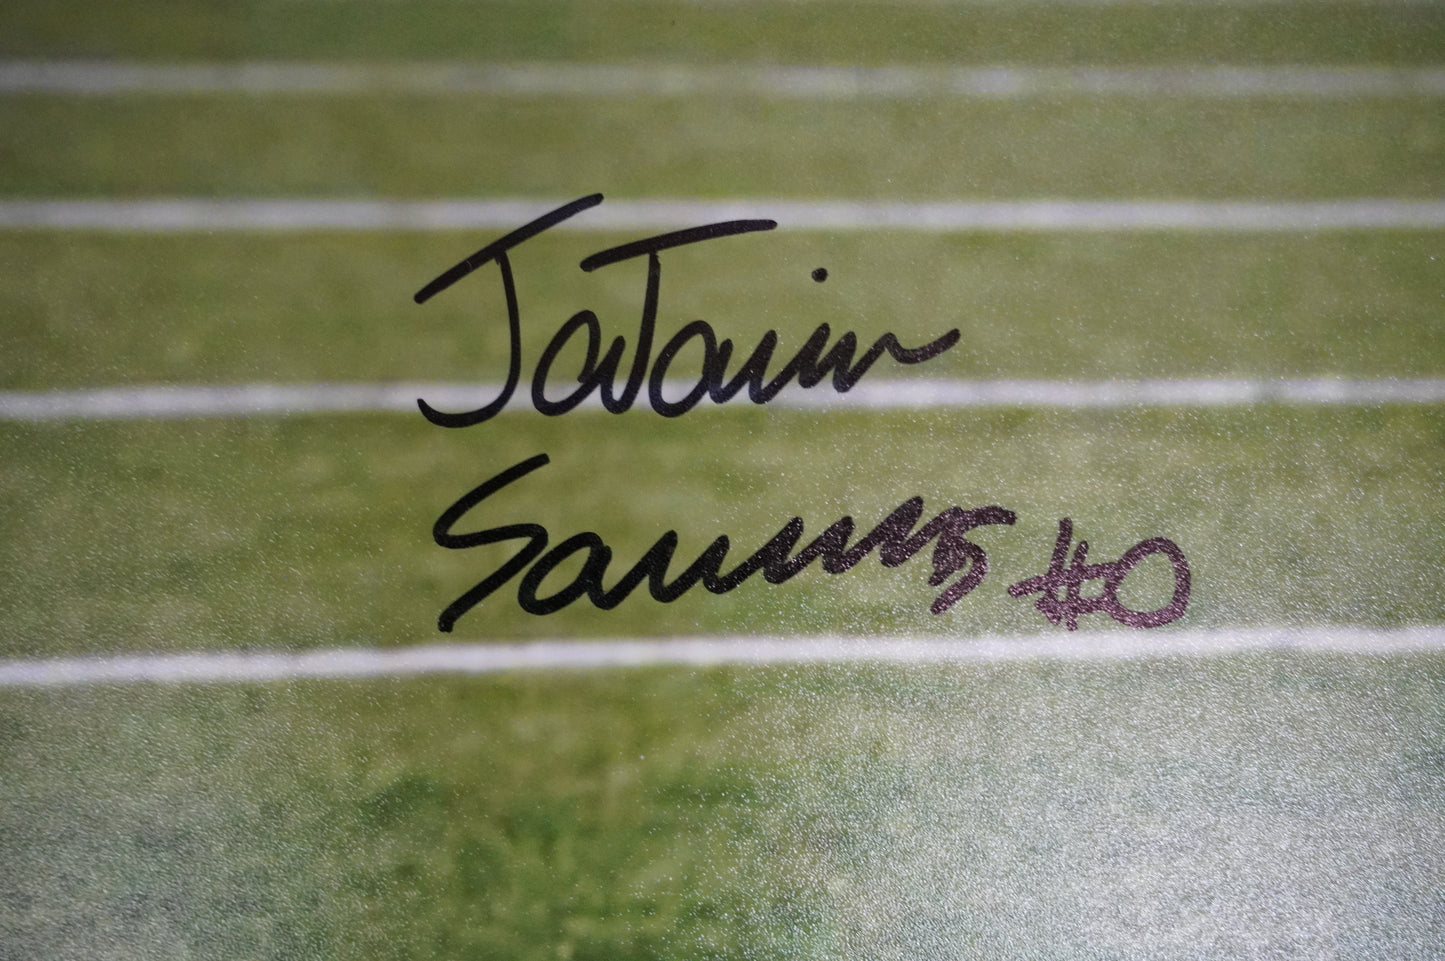 JaTavin
Sanders #0